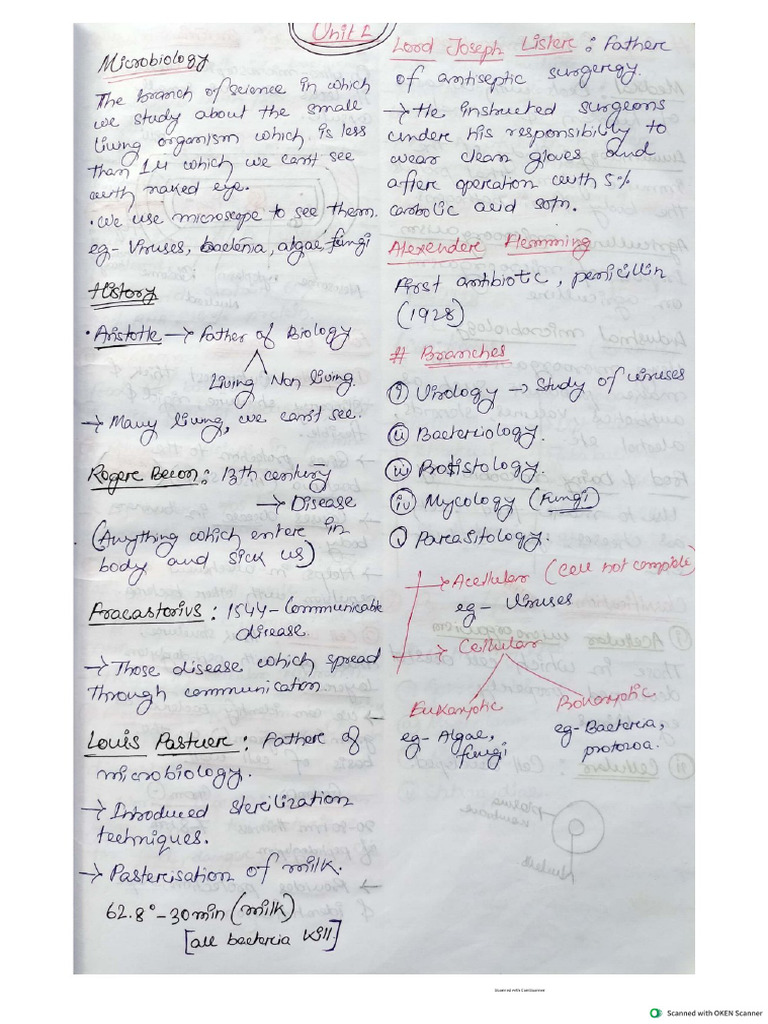 Unit 1
Microbiology
The branch of science in which
we study about the small
living organism which is less
than 1µ which we can't see
with naked eye.
• we use microscope to see them.
eg- Viruses, bacteria, algae, fungi
History
• Aristotle → Father of Biology
Living Non living.
→ Many living, we can't see.
Rogere Becon: 13th century
→ Disease
(Anything which entere in
body and sick us)
Fracastorius: 1544- Communicable
disease.
→ Those disease which spread
through communication.
Louis Pastuer: Fathere of
microbiology.
→ Introduced stercilization
techniques.
→ Pastercisation of milk.
62.8° - 30 min (milk)
[all bactercia kill]
Lord Joseph Listere: Fathere
of antiseptic surgergy.
→ He instructed surgeons
undere his responsibility to
wear clean gloves and
aftere operation with 5%
carbolic acid soln.
Alexendere Flemming
First antibiotic, penicillin
(1928)
# Branches
(i) Virology → Study of viruses
(ii) Bactercidology.
(iii) Protistology.
(iv) Mycology (Fungi)
(v) Parcasitology.
→ Acellular (cell not complete)
eg- Viruses
→ Cellular
Eukaryotic Prokaryotic
eg- Algae, eg- Bacteria,
fungi protozoa.
Scanned with CamScanner
Scanned with OKEN Scanner